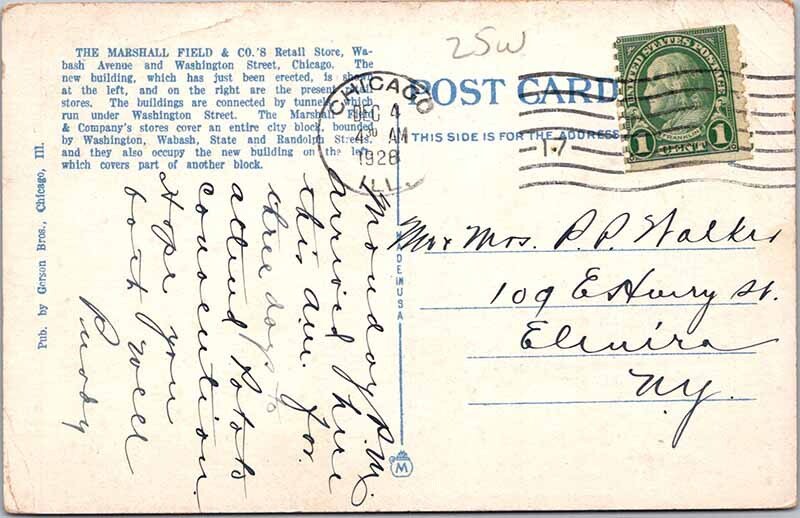 25W
THE MARSHALL FIELD & CO.'S Retail Store, Wa-
bash Avenue and Washington Street, Chicago. The
new building, which has just been erected, is
at the left, and on the right are the present
stores. The buildings are connected by tunnel, which
run under Washington Street. The Marshall
& Company's stores cover an entire city block, bounded
by Washington, Wabash, State and Randolph Streets,
and they also occupy the new building on the left
which covers part of another block.
POST CARD
THIS SIDE IS FOR THE ADDRESS
CHICAGO
DEC 4
4 AM
1928
ILL.
17
UNITED STATES POSTAGE
FRANKLIN
1 CENT 1
Pub. by Gerson Bros., Chicago, Ill.
MADE IN USA
M
Monday P.M.
Arrived here
this am. for
three days to
attend
convention.
Hope you
both well
Mr & Mrs. P. P. Walker
109 E Henry St.
Elmira
N.Y.